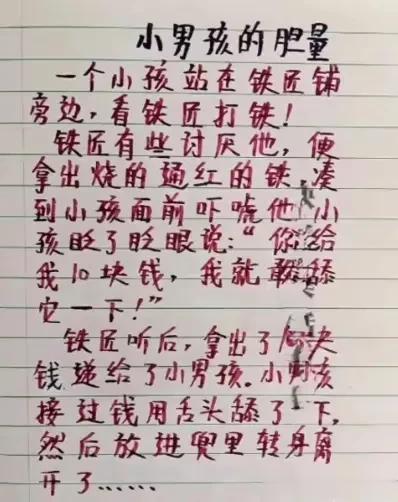 小男孩的胆量
一个小孩站在铁匠铺
旁边，看铁匠打铁！
铁匠有些讨厌他，便
拿出烧的通红的铁，凑
到小孩面前吓唬他，小
孩眨了眨眼说："你给
我10块钱，我就敢舔
它一下！"
铁匠听后，拿出了10块
钱递给了小男孩。小男孩
接过钱用舌头舔了一下，
然后放进兜里转身离
开了……